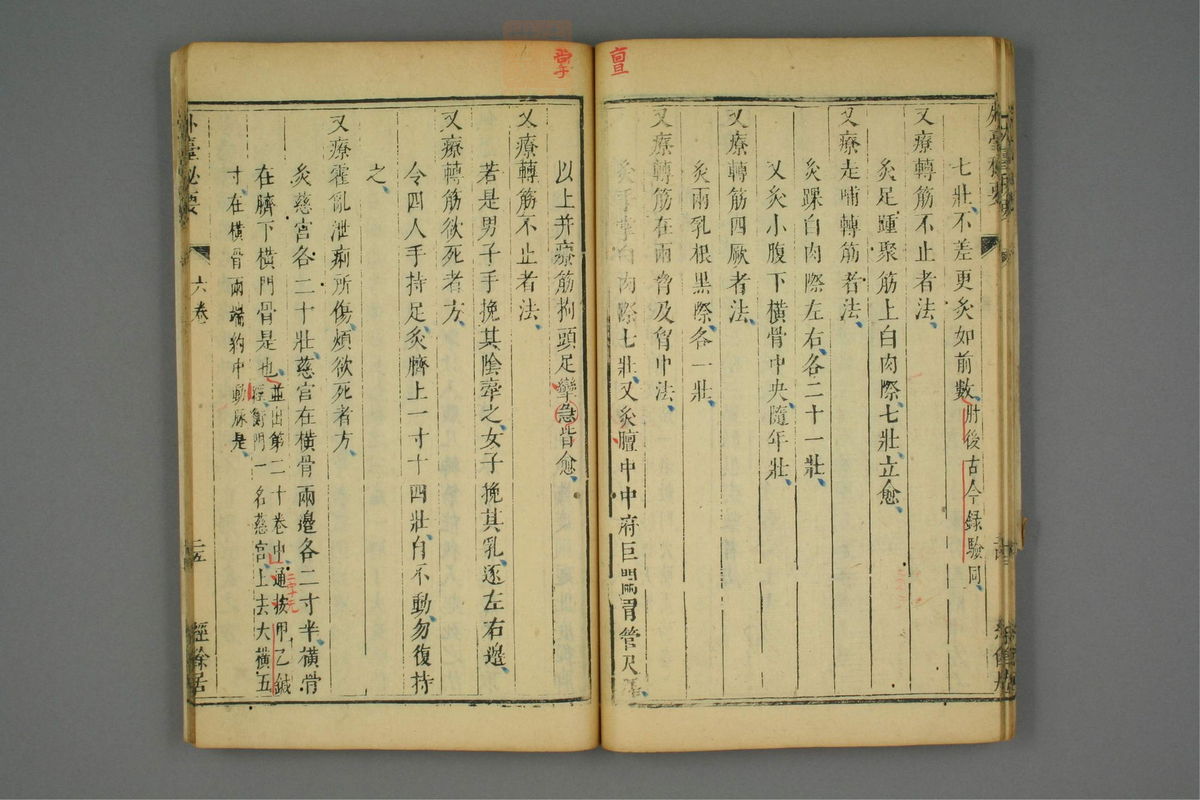 亶
七壯、不差更灸如前數、肘後古今録驗同、
又療轉筋不止者法、
灸足踵聚筋上白肉際、七壯、立愈、
又療走哺轉筋者法、
灸踝白肉際左右、各二十一壯、
又灸小腹下橫骨中央隨年壯、
又療轉筋四厥者法、
灸兩乳根黑際、各一壯
又療轉筋在兩臂及胷中法、
灸手掌白肉際七壯、又灸膻中中府巨闕胃管尺澤、
掌
以上并療筋拘頭足攣急皆愈、
又療轉筋不止者法、
若是男子手挽其陰牽之、女子挽其乳、逐左右邊、
又療轉筋欲死者方、
令四人手持足灸臍上一寸十四壯、自不動、勿復持
之、
又療霍亂泄痢所傷、煩欲死者方、
灸慈宮各二十壯、慈宮在橫骨兩邊各二寸半、橫骨
在臍下橫門骨是也、並出第二十卷中、通按甲乙鍼
經衝門一名慈宮、上去大橫五
寸、在橫骨兩端約中動脉是、
外臺秘要
六卷
二十五
經餘居